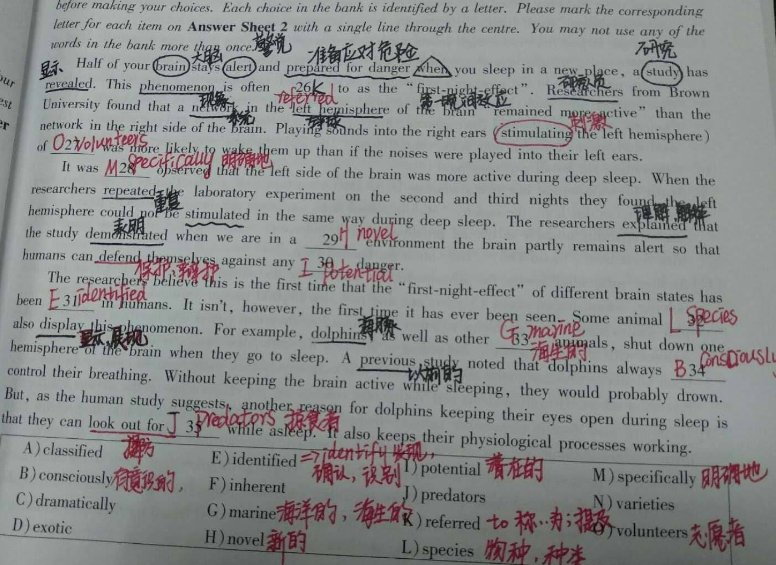 before making your choices. Each choice in the bank is identified by a letter. Please mark the corresponding
letter for each item on Answer Sheet 2 with a single line through the centre. You may not use any of the
words in the bank more than once. 警觉 准备应对危险 研究
显示 Half of your brain 大脑 stays alert and prepared for danger when you sleep in a new place, a study has
revealed. This phenomenon is often 26 K to as the "first-night-effect". Researchers from Brown
现象 referred 第一晚间效应 研究人员
University found that a network in the left hemisphere of the brain "remained more active" than the
network in the right side of the brain. Playing sounds into the right ears (stimulating the left hemisphere)
系统 刺激
of O 27 volunteers was more likely to wake them up than if the noises were played into their left ears.
It was M 28 specifically 明确地 observed that the left side of the brain was more active during deep sleep. When the
researchers repeated the laboratory experiment on the second and third nights they found the left
重复
hemisphere could not be stimulated in the same way during deep sleep. The researchers explained that
表明
the study demonstrated when we are in a 29 H novel environment the brain partly remains alert so that
humans can defend themselves against any I 30 danger.
保护 potential
The researchers believe this is the first time that the "first-night-effect" of different brain states has
been E 31 identified in humans. It isn't, however, the first time it has ever been seen. Some animal L species
also display this phenomenon. For example, dolphins, as well as other G 33 marine animals, shut down one
显示,展现 海豚 海生的
hemisphere of the brain when they go to sleep. A previous study noted that dolphins always B 34 consciously
以前的
control their breathing. Without keeping the brain active while sleeping, they would probably drown.
But, as the human study suggests, another reason for dolphins keeping their eyes open during sleep is
that they can look out for J 35 predators 掠食者 while asleep. It also keeps their physiological processes working.
A) classified
B) consciously 有意识的,
C) dramatically
D) exotic
E) identified ⇒ identify 发现, 确认,识别
F) inherent
G) marine 海洋的,海生的
H) novel 新的
I) potential 潜在的
J) predators
K) referred to 称..为;提及
L) species 物种,种类
M) specifically 明确地
N) varieties
O) volunteers 志愿者